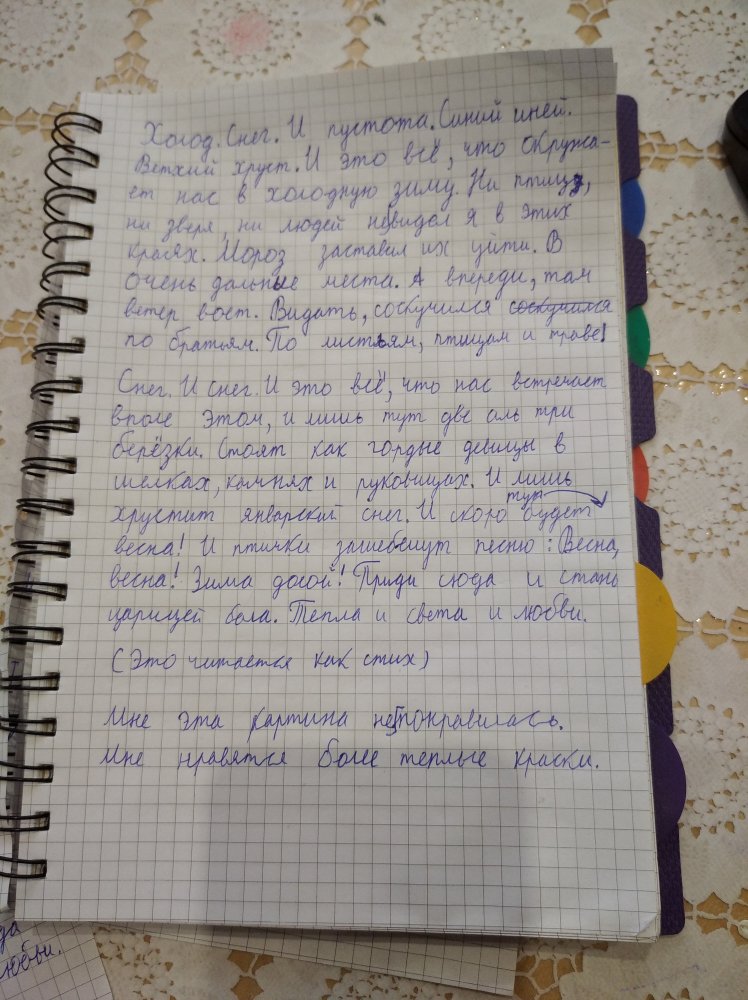 Холод. Снег. И пустота. Синий иней.
Ветхий хруст. И это всё, что окружа-
ет нас в холодную зиму. Ни птиц,
ни зверя, ни людей невидал я в этих
краях. Мороз заставил их уйти. В
очень дальные места. А впереди, там
ветер воет. Видать, соскучился соскучился
по братьям. По листьям, птицам и траве!
Снег. И снег. И это всё, что нас встречает
вполе этом, и лишь тут две аль три
берёзки. Стоят как гордые девицы в
шелках, камнях и руковицах. И лишь
тут
хрустит январский снег. И скоро будет
весна! И птички защебечут песню: Весна,
весна! Зима долой! Приди сюда и стань
царицей бала. Тепла и света и любви.
(Это читается как стих)
Мне эта картина непонравилась.
Мне нравятся более теплые краски.
да
любви.